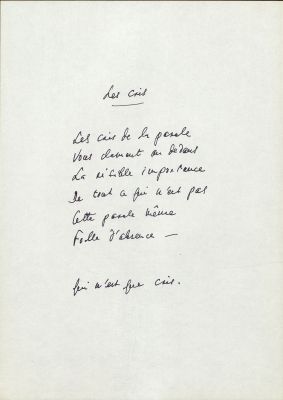 Les cris
Les cris de la parole
Vous clament au dedans
La risible importance
De tout ce qui n'est pas
Cette parole même
Folle d'absence —
Qui n'est que cris.